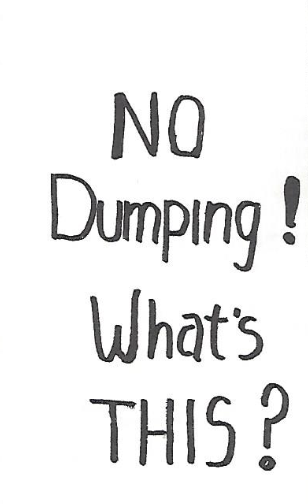 NO
Dumping!
What's
THIS?